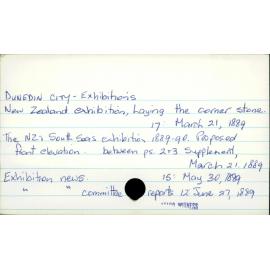 DUNEDIN CITY - Exhibitions
New Zealand exhibition, Laying the corner stone.
17 March 21, 1889
The N.Z. & South Seas exhibition 1889-90. Proposed
front elevation. between ps. 2+3 Supplement,
March 21, 1889
Exhibition news. 15: May 30, 1889
" " committee reports 12 June 27, 1889
WITNESS